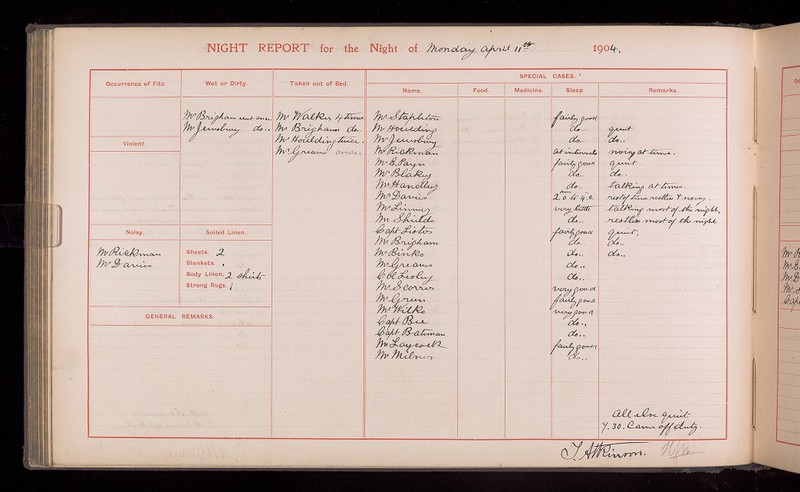 NIGHT REPORT for the Night of Monday April 11th 1904.
Occurrence of Fits.
Wet or Dirty.
Taken out of Bed.
SPECIAL CASES.
Name.
Food.
Medicine.
Sleep.
Remarks.
Mr Brigham wet one
Mr Jewsbury do..
Mr Walker 4 times
Mr Brigham do.
Mr Houlding twice.
Mr Greams once.
Violent.
Noisy.
Mr Rickman
Mr Davies
Soiled Linen.
Sheets. 2
Blankets. ,
Body Linen. 2 shirts
Strong Rugs. 1
GENERAL REMARKS.
Mr Stapleton fairly good
Mr Houlding do.. quiet
Mr Jewsbury do.. do..
Mr Rickman at intervals noisy at times.
Mr B. Payn fairly good quiet.
Mr Blakey do.. do..
Mr Handley do.. talking at times.
Mr Davies 2.0 to 4.0. rest of time restless & noisy.
Mr very little talking most of the night.
Mr Shields do.. restless most of the night
Capt Lister fairly good quiet.
Mr Brigham do. do..
Mr Binks do.. do..
Mr Greams do..
Col do..
Mr very good
Mr Green fairly good
Mr Wilks very good
Capt Bee do..
Capt Bateman do..
Mr Laycock fairly good
Mr Milner do..
All else quiet.
7.30. Came off duty.
J. Atkinson.